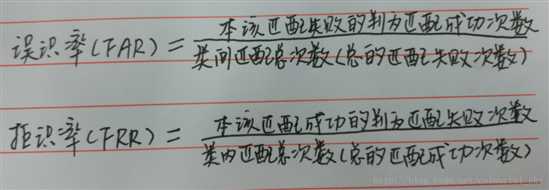 误识率(FAR) = 本该匹配失败的判为匹配成功次数
类间匹配总次数(总的匹配失败次数)
拒识率(FRR) = 本该匹配成功的判为匹配失败次数
类内匹配总次数(总的匹配成功次数)